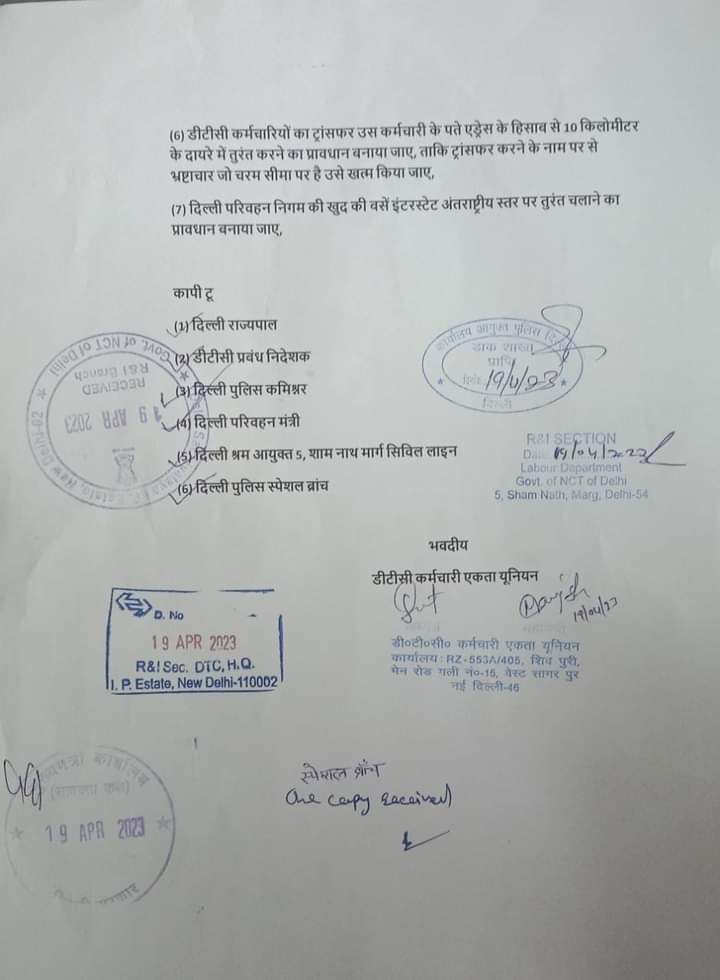 (6) डीटीसी कर्मचारियों का ट्रांसफर उस कर्मचारी के पते एड्रेस के हिसाब से 10 किलोमीटर
के दायरे में तुरंत करने का प्रावधान बनाया जाए, ताकि ट्रांसफर करने के नाम पर से
भ्रष्टाचार जो चरम सीमा पर है उसे खत्म किया जाए,
(7) दिल्ली परिवहन निगम की खुद की बसें इंटरस्टेट अंतराष्ट्रीय स्तर पर तुरंत चलाने का
प्रावधान बनाया जाए,
कापी टू
(1) दिल्ली राज्यपाल
(2) डीटीसी प्रबंध निदेशक
(3) दिल्ली पुलिस कमिश्नर
(4) दिल्ली परिवहन मंत्री
(5) दिल्ली श्रम आयुक्त 5, शाम नाथ मार्ग सिविल लाइन
(6) दिल्ली पुलिस स्पेशल ब्रांच
Govt. of NCT of Delhi
R&I Branch
RECEIVED
19 APR 2023
New Delhi-02
कार्यालय आयुक्त पुलिस
डाक शाखा
प्राप्ति
19/4/23
दिल्ली
R&I SECTION
19/04/2023
Labour Department
Govt. of NCT of Delhi
5, Sham Nath, Marg, Delhi-54
भवदीय
डीटीसी कर्मचारी एकता यूनियन
19/04/23
डी०टी०सी० कर्मचारी एकता यूनियन
कार्यालय: RZ-553A/405, शिव पुरी,
मेन रोड गली नं०-15, वेस्ट सागर पुर
नई दिल्ली-46
D. No
19 APR 2023
R&I Sec. DTC, H.Q.
I. P. Estate, New Delhi-110002
कार्यालय
19 APR 2023
स्पेशल ब्राँच
One copy received